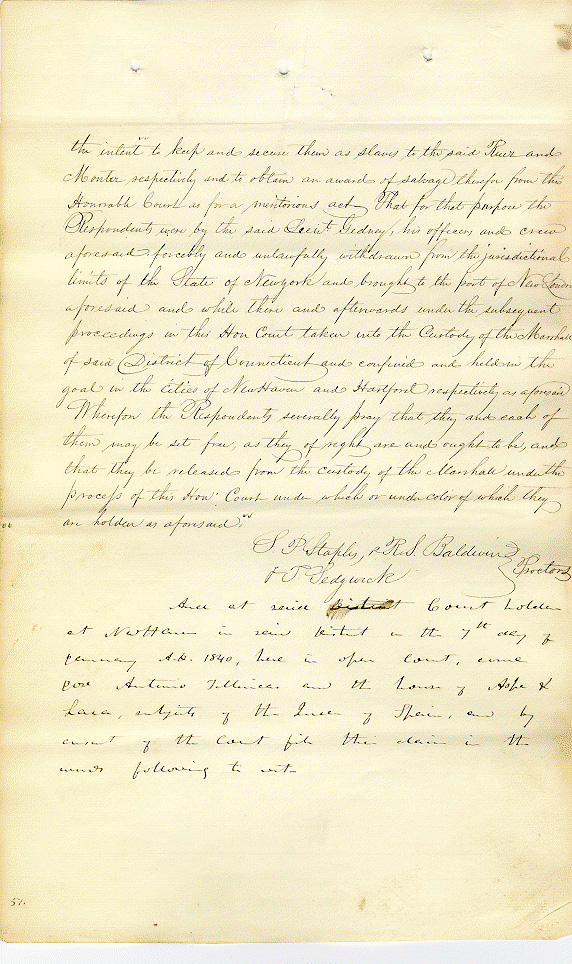 the intent to keep and secure them as slaves to the said Ruiz and
Montez respectively and to obtain an award of salvage therefor from this
Honorable Court as for a meritorious act. That for that purpose the
Respondents were by the said Lieut. Gedney, his officers and crew
aforesaid forcibly and unlawfully withdrawn from the jurisdictional
limits of the State of Newyork and brought to the port of New London
aforesaid and while there and afterwards under the subsequent
proceedings in this Hon Court taken into the Custody of the Marshall
of said District of Connecticut and confined and held in the
goal in the Cities of New Haven and Hartford respectively as aforesaid
Wherefore the Respondents severally pray that they and each of
them may be set free, as they of right are and ought to be, and
that they be released from the custody of the Marshall under the
process of this Hon: Court under which or under color of which they
are holden as aforesaid."
S P Staples, & R. S. Baldwin
& T Sedgwick
Proctors
And at said District Court holden
at New Haven in said District on the 7th day of
January A.D. 1840, here in open Court, come
Antonio Tellincas and the house of Aspe &
Laca, subjects of the Queen of Spain, and by
consent of the Court file their claim in the
words following to wit
51.